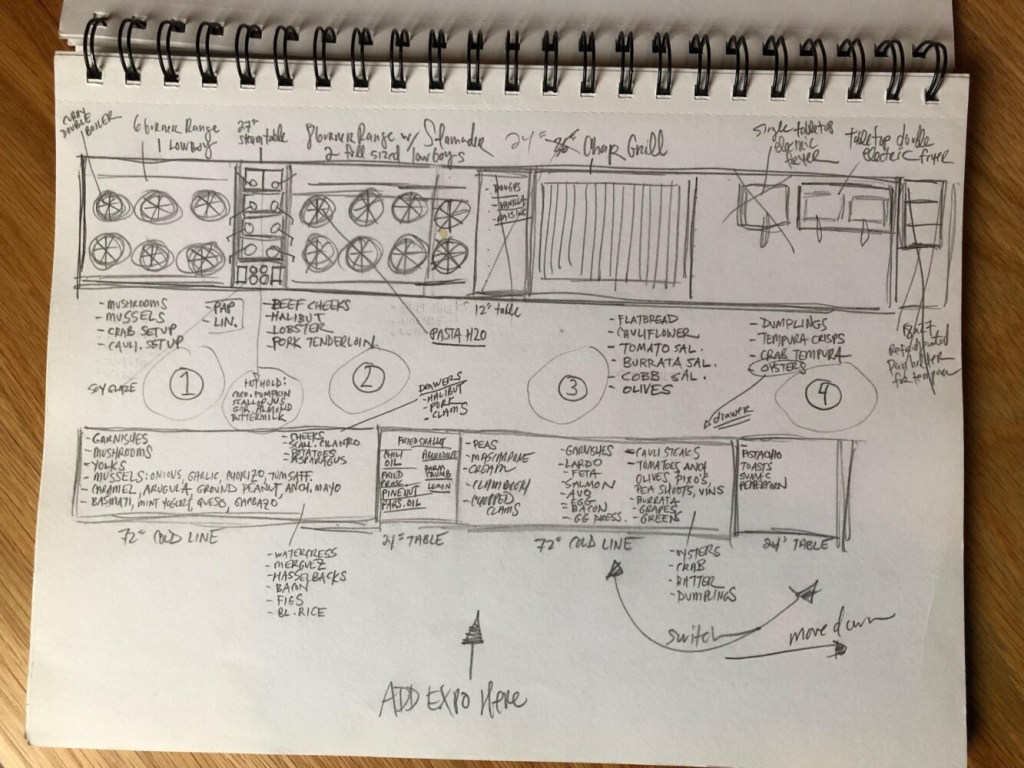 CURRY
DOUBLE BOILER
6 burner Range
1 LOWBOY
27"
steamtable
8 burner Range w/ Salamander
2 full sized lowboys
24"
Char Grill
single tabletop
electric
fryer
tabletop double
electric fryer
- DOUGHS
- VANILLA
- RAISINS
12" table
- MUSHROOMS
- MUSSELS
- CRAB SETUP
- CAULI. SETUP
- PAP
- LIN.
- BEEF CHEEKS
- HALIBUT
- LOBSTER
- PORK TENDERLOIN
PASTA H2O
- FLATBREAD
- CAULIFLOWER
- TOMATO SAL.
- BURRATA SAL.
- COBB SAL.
- OLIVES
- DUMPLINGS
- TEMPURA CRISPS
- CRAB TEMPURA
- OYSTERS
Refrigerated
Pan holder
for tempura
SOY GLAZE
1
HOT HOLD:
COCO. PUMPKIN
BUTTERMILK
2
DRAWERS
- HALIBUT
- PORK
- CLAMS
3
drawer
4
- GARNISHES
- MUSHROOMS
- YOLKS
- MUSSELS: ONIONS, GARLIC, CHORIZO, TOM SAFF.
- CARAMEL, ARUGULA, GROUND PEANUT, ANCH. MAYO
- BASMATI, MINT YOGURT, QUESO, GARBAZO
- CHEEKS
- SCALL. CILANTRO
- POTATOES
- ASPARAGUS
FRIED SHALLOT
CHILI
OIL
FRIED
PROSC.
PINE NUT
PARS. OIL
PARM
CRUMB
LEMON
- PEAS
- MASCARPONE
- CREAM
- CLAM BROTH
- CHOPPED
CLAMS
GARNISHES
- LARDO
- FETA
- SALMON
- AVO
- EGG
- BACON
- GG PRESS.
- CAULI STEAKS
- TOMATOES AND
OLIVES PIXOS,
PEA SHOOTS, VINS
- BURRATA
- GRAPES
- GREENS
- PISTACHIO
TOASTS
SUMAC
PEPPERCORN
72" COLD LINE
24" TABLE
72" COLD LINE
24" TABLE
- WATERCRESS
- MERGUEZ
- HASSELBACKS
- BACON
- FIGS
- BL. RICE
- OYSTERS
- CRAB
- BATTER
- DUMPLINGS
switch
move down
ADD EXPO Here